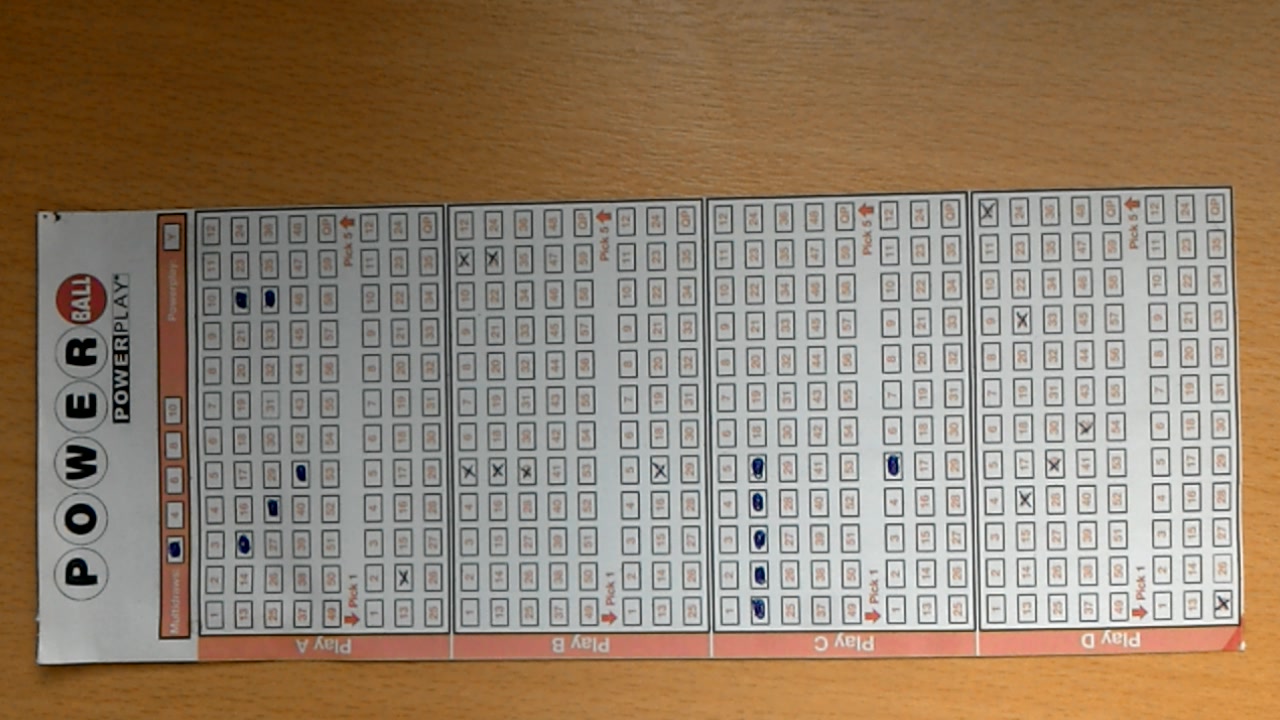 POWERBALL
POWERPLAY
Multidraws: 4 6 8 10 Powerplay: Y
Play A
1 2 3 4 5 6 7 8 9 10 11 12
13 14 16 17 18 19 20 21 23 24
25 26 27 29 30 31 32 33 35 36
37 38 39 40 42 43 44 45 46 47 48
49 50 51 52 53 54 55 56 57 58 59 QP
Pick 1 Pick 5
1 2 3 4 5 6 7 8 9 10 11 12
13 15 16 17 18 19 20 21 22 23 24
25 26 27 28 29 30 31 32 33 34 35 QP
Play B
1 2 3 4 6 7 8 9 10 12
13 14 15 16 18 19 20 21 22 24
25 26 27 28 30 31 32 33 34 35 36
37 38 39 40 41 42 43 44 45 46 47 48
49 50 51 52 53 54 55 56 57 58 59 QP
Pick 1 Pick 5
1 2 3 4 5 6 7 8 9 10 11 12
13 14 15 16 18 19 20 21 22 23 24
25 26 27 28 29 30 31 32 33 34 35 QP
Play C
1 2 3 4 5 6 7 8 9 10 11 12
18 19 20 21 22 23 24
25 26 27 28 29 30 31 32 33 34 35 36
37 38 39 40 41 42 43 44 45 46 47 48
49 50 51 52 53 54 55 56 57 58 59 QP
Pick 1 Pick 5
1 2 3 4 6 7 8 9 10 11 12
13 14 15 16 17 18 19 20 21 22 23 24
25 26 27 28 29 30 31 32 33 34 35 QP
Play D
1 2 3 4 5 6 7 8 9 10 11
13 14 15 17 18 19 20 22 23 24
25 26 27 28 30 31 32 33 34 35 36
37 38 39 40 41 43 44 45 46 47 48
49 50 51 52 53 54 55 56 57 58 59 QP
Pick 1 Pick 5
1 2 3 4 5 6 7 8 9 10 11 12
13 14 15 16 17 18 19 20 21 22 23 24
26 27 28 29 30 31 32 33 34 35 QP